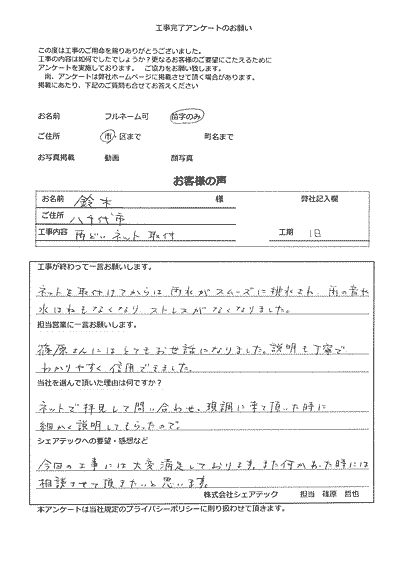 工事完了アンケートのお願い
この度は工事のご用命を賜りありがとうございました。
工事の内容は如何でしたでしょうか？更なるお客様のご要望にこたえるために
アンケートを実施しております。 ご協力をお願い致します。
尚、アンケートは弊社ホームページに掲載させて頂く場合があります。
掲載にあたり、下記のご質問も合せてお答えください
お名前 フルネーム可 苗字のみ
ご住所 市・区まで 町名まで
お写真掲載 動画 顔写真
お客様の声
お名前 鈴木 様 弊社記入欄
ご住所 八千代市
工事内容 雨どいネット取付 工期 1日
工事が終わって一言お願いします。
ネットを取付けてからは雨水がスムーズに排水され、雨の音や
水はねもなくなり ストレスがなくなりました。
担当営業に一言お願いします。
篠原さんにはとてもお世話になりました。説明も丁寧で
わかりやすく信用できました。
当社を選んで頂いた理由は何ですか？
ネットで拝見して問い合わせ、現調に来て頂いた時に
細かく説明してもらったので。
シェアテックへの要望・感想など
今回の工事には大変満足しております。また何かあった時には
相談させて頂きたいと思います。
株式会社シェアテック 担当 篠原 哲也
本アンケートは当社規定のプライバシーポリシーに則り扱わせて頂きます。